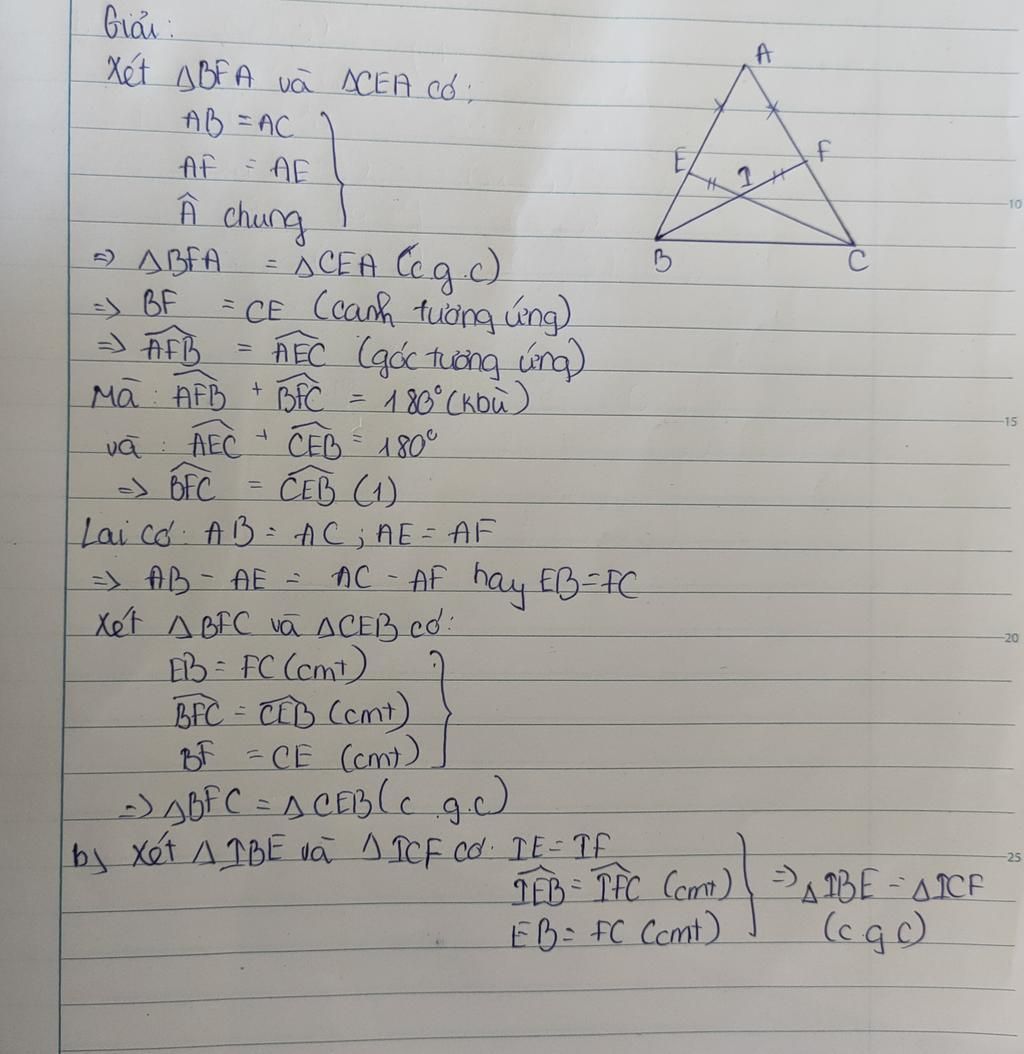 Giải:
Xét ΔBFA và ΔCEA có:
AB = AC
AF = AE
Â chung
=> ΔBFA = ΔCEA (c.g.c)
=> BF = CE (cạnh tương ứng)
=> AFB = AEC (góc tương ứng)
Mà: AFB + BFC = 180° (kbù)
và: AEC + CEB = 180°
=> BFC = CEB (1)
Lại có: AB = AC ; AE = AF
=> AB - AE = AC - AF hay EB = FC
Xét ΔBFC và ΔCEB có:
EB = FC (cmt)
BFC = CEB (cmt)
BF = CE (cmt)
=> ΔBFC = ΔCEB (c.g.c)
b, Xét ΔIBE và ΔICF có: IE = IF
IEB = IFC (cmt) => ΔIBE = ΔICF
EB = FC (cmt) (c g c)
A
E
I
F
B
C
10
15
20
25